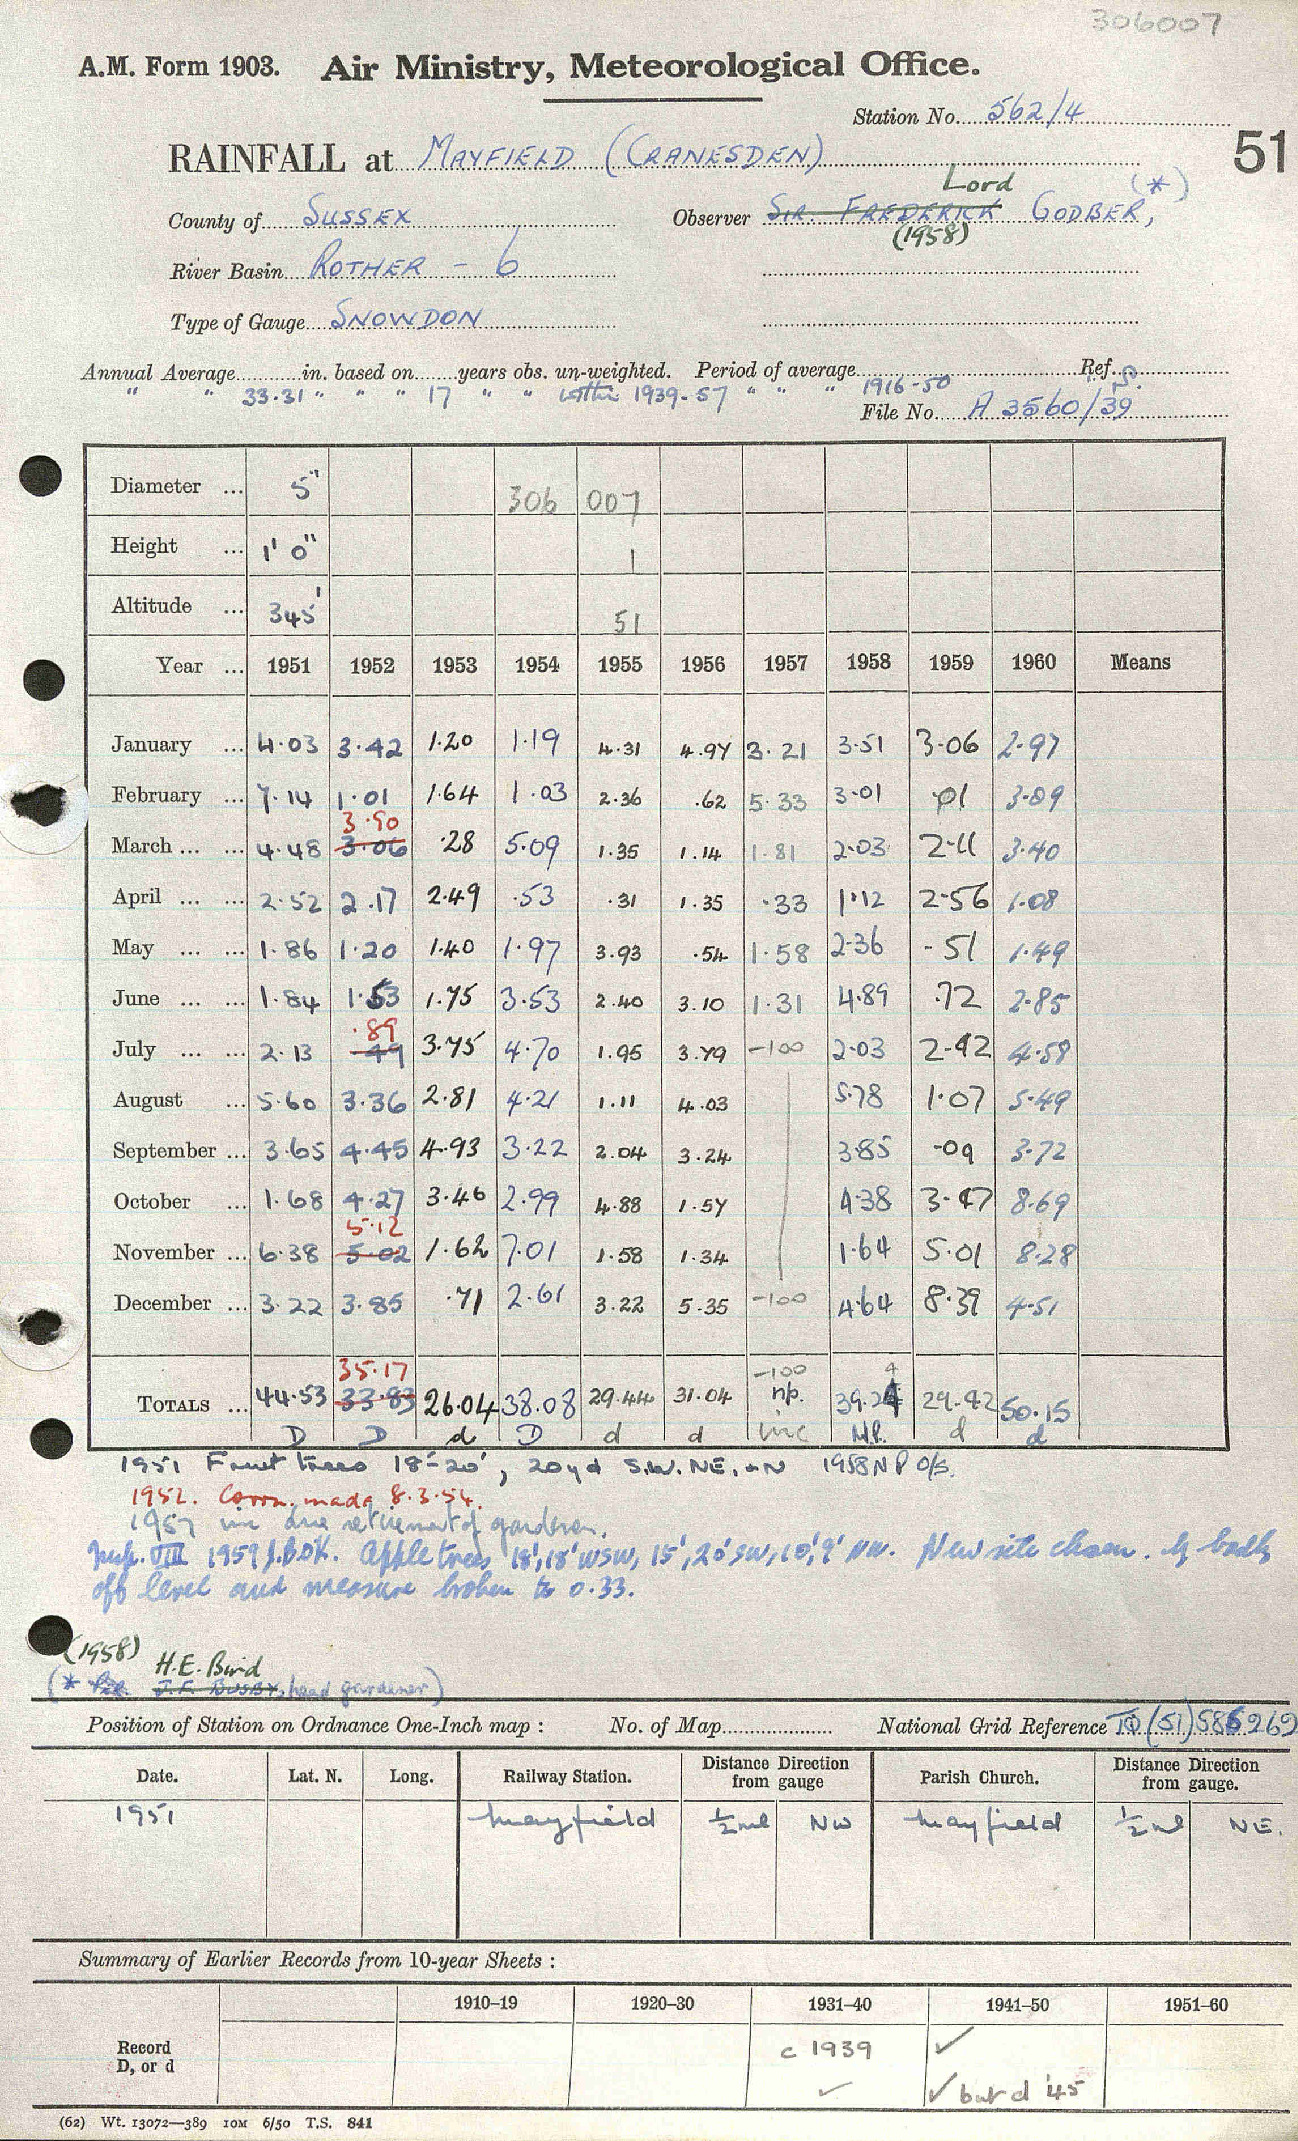 306007
A.M. Form 1903. Air Ministry, Meteorological Office.
Station No. 562/4
RAINFALL at MAYFIELD (CRANESDEN)
51
Lord (*)
County of SUSSEX Observer SIR. FREDERICK GODBER,
(1958)
River Basin ROTHER - 6
Type of Gauge SNOWDON
Annual Average in. based on years obs. un-weighted. Period of average Ref.
" " 33.31 " " " 17 " " 1939-57 " " " 1916-50 " S.
File No. A 3560/39
Diameter ... 5" 306 007
Height ... 1' 0" 1
Altitude ... 345' 51
Year ... 1951 1952 1953 1954 1955 1956 1957 1958 1959 1960 Means
January ... 4.03 3.42 1.20 1.19 4.31 4.97 3.21 3.51 3.06 2.97
February ... 7.14 1.01 1.64 1.03 2.36 .62 5.33 3.01 .01 3.09
3.90
March ... ... 4.48 3.06 .28 5.09 1.35 1.14 1.81 2.03 2.11 3.40
April ... ... 2.52 2.17 2.49 .53 .31 1.35 .33 1.12 2.56 1.08
May ... ... 1.86 1.20 1.40 1.97 3.93 .54 1.58 2.36 .51 1.49
June ... ... 1.84 1.53 1.75 3.53 2.40 3.10 1.31 4.89 .72 2.85
.89
July ... ... 2.13 .49 3.75 4.70 1.95 3.79 -100 2.03 2.42 4.58
August ... 5.60 3.36 2.81 4.21 1.11 4.03 5.78 1.07 5.49
September ... 3.65 4.45 4.93 3.22 2.04 3.24 3.85 .09 3.72
October ... 1.68 4.27 3.46 2.99 4.88 1.57 4.38 3.47 8.69
5.12
November ... 6.38 5.02 1.62 7.01 1.58 1.34 1.64 5.01 8.28
December ... 3.22 3.85 .71 2.61 3.22 5.35 -100 4.64 8.39 4.51
35.17 -100 4
TOTALS ... 44.53 33.83 26.04 38.08 29.44 31.04 np. 39.24 29.42 50.15
D D d D d d inc N.P. d d
1951 Fruit trees 18'-20', 20yd S.W. NE, + N 1958 NP O/S.
1952. Corrn. made 8.3.54.
1957 inc due retirement of gardener.
Insp. VIII 1959 J.B.DK. Apple trees 18', 18' WSW, 15', 20' SW, 10', 9' NW. New site chosen. badly
off level and measure broken to 0.33.
(1958) H.E. Bird
(* J.F. BUSBY, head gardener)
Position of Station on Ordnance One-Inch map : No. of Map National Grid Reference TQ (51) 586269
Date. Lat. N. Long. Railway Station. Distance from gauge Direction Parish Church. Distance from gauge. Direction
1951 Mayfield ½ml NW Mayfield ½ml NE.
Summary of Earlier Records from 10-year Sheets :
1910–19 1920–30 1931–40 1941–50 1951–60
Record c 1939 ✓
D, or d ✓ ✓ but d '45
(62) Wt. 13072—389 10M 6/50 T.S. 841